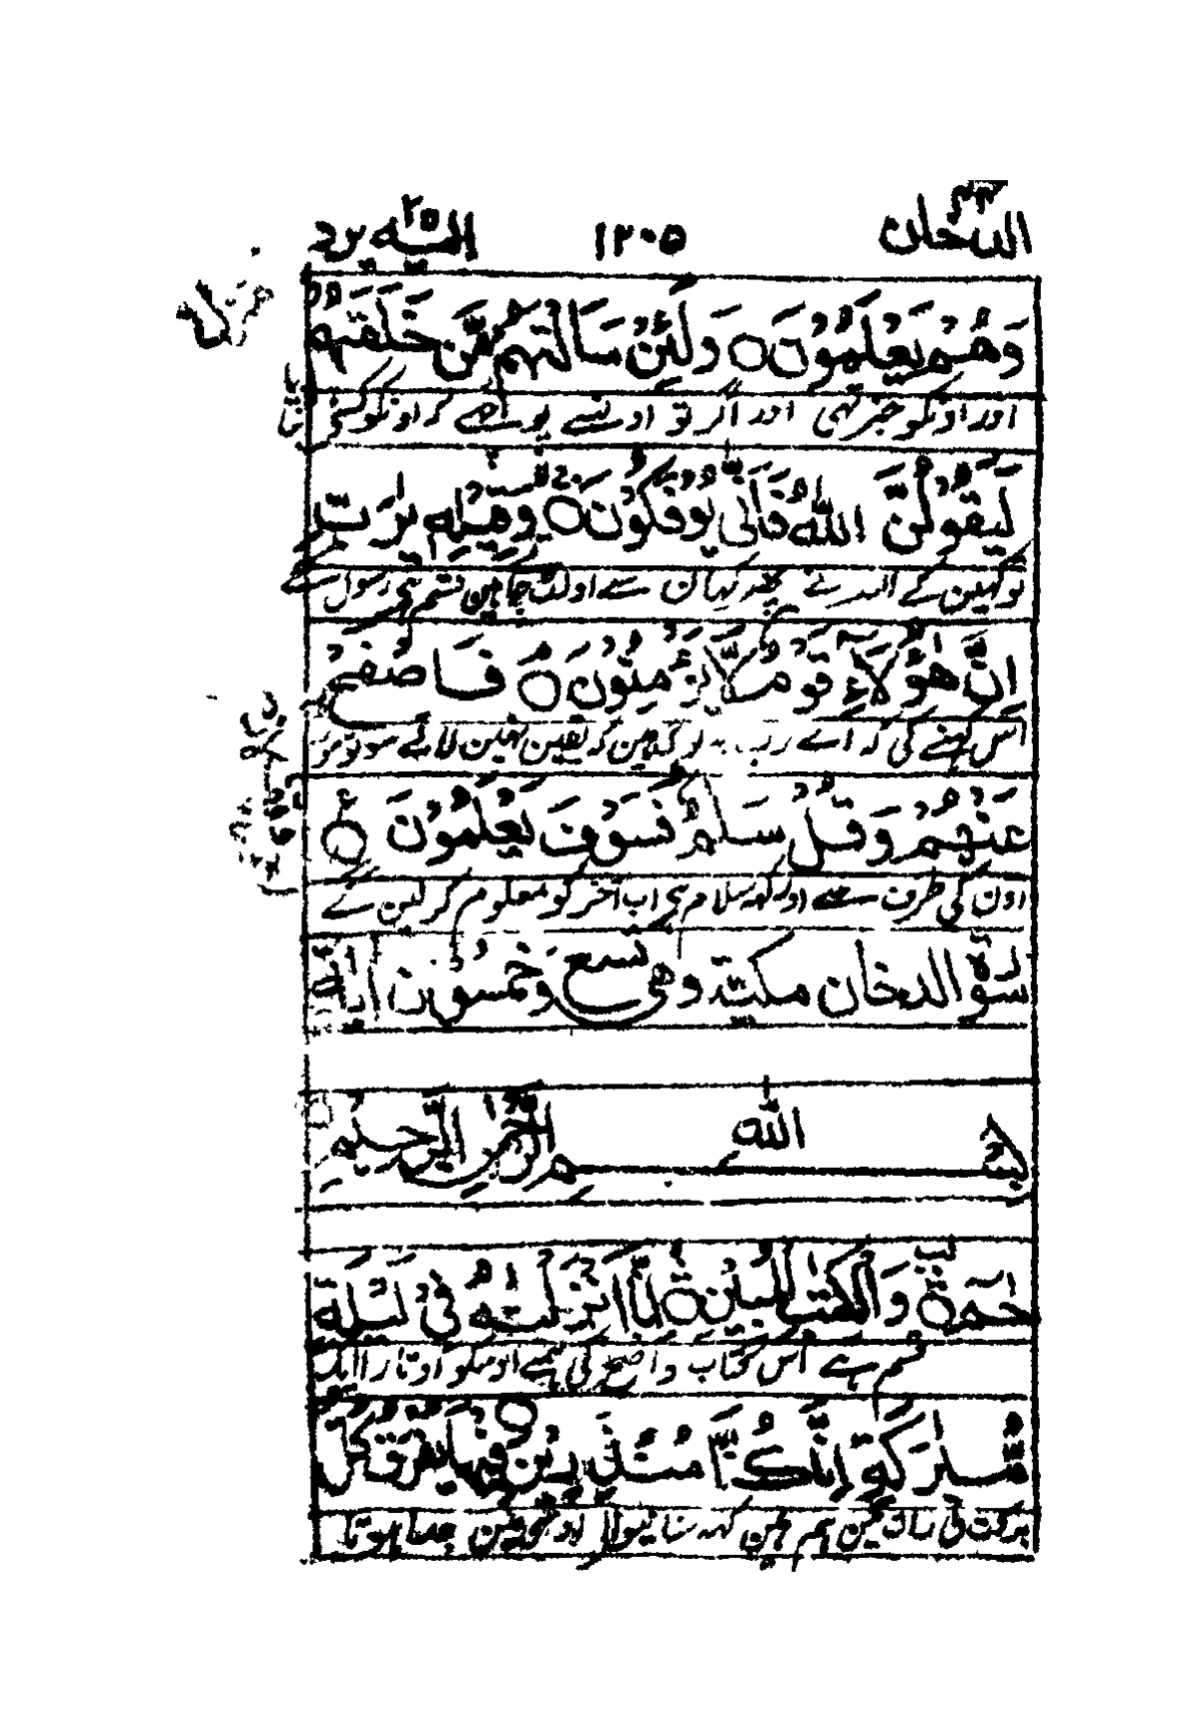 الدخان ٤٤ ١٢٠٥ اليه يرد ٢٥
وَهُمْ يَعْلَمُوْنَ ○ وَلَئِنْ سَاَلْتَهُمْ مَّنْ خَلَقَهُمْ
اور اونکو خبر تھی اور اگر تو اونسے پوچھے کہ اونکو کسنے بنایا
لَيَقُوْلُنَّ اللّٰهُ فَاَنّٰى يُؤْفَكُوْنَ ○ وَقِيْلِهٖ يٰرَبِّ
تو کہین گے اللہ نے پھر کہان سے اولٹ جاتے ہین قسم ہی رسول کے
اِنَّ هٰٓؤُلَآءِ قَوْمٌ لَّا يُؤْمِنُوْنَ ○ فَاصْفَحْ
اس کہنے کی کہ اے رب یہ لوگ ہین کہ یقین نہین لاتے سو تو مڑ
عَنْهُمْ وَقُلْ سَلٰمٌ فَسَوْفَ يَعْلَمُوْنَ ○ ع
اون کی طرف سے اور کہہ سلام ہی اب آخر کو معلوم کر لین گے
سورة الدخان مكية وهي تسع وخمسون اية
بِسْمِ اللّٰهِ الرَّحْمٰنِ الرَّحِيْمِ
حٰمٓ ○ وَالْكِتٰبِ الْمُبِيْنِ ○ اِنَّا اَنْزَلْنٰهُ فِيْ لَيْلَةٍ
قسم ہے اس کتاب واضح کی ہمنے اوسکو اوتارا ایک
مُّبٰرَكَةٍ اِنَّا كُنَّا مُنْذِرِيْنَ ○ فِيْهَا يُفْرَقُ كُلُّ
برکت کی رات مین ہم ہین کہہ سنانیوالے اوسی مین جدا ہوتا